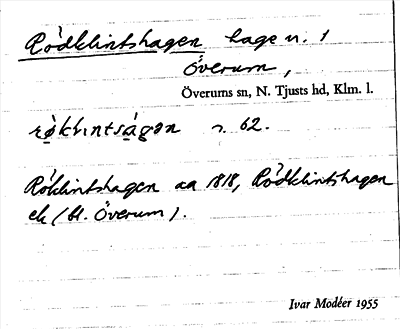 Rödklintshagen hage n. 1
Överum,
Överums sn, N. Tjusts hd, Klm. l.
n. 62.
Röklintshagen aa 1818, Rödklintshagen
ek (bl. Överum).
Ivar Modéer 1955